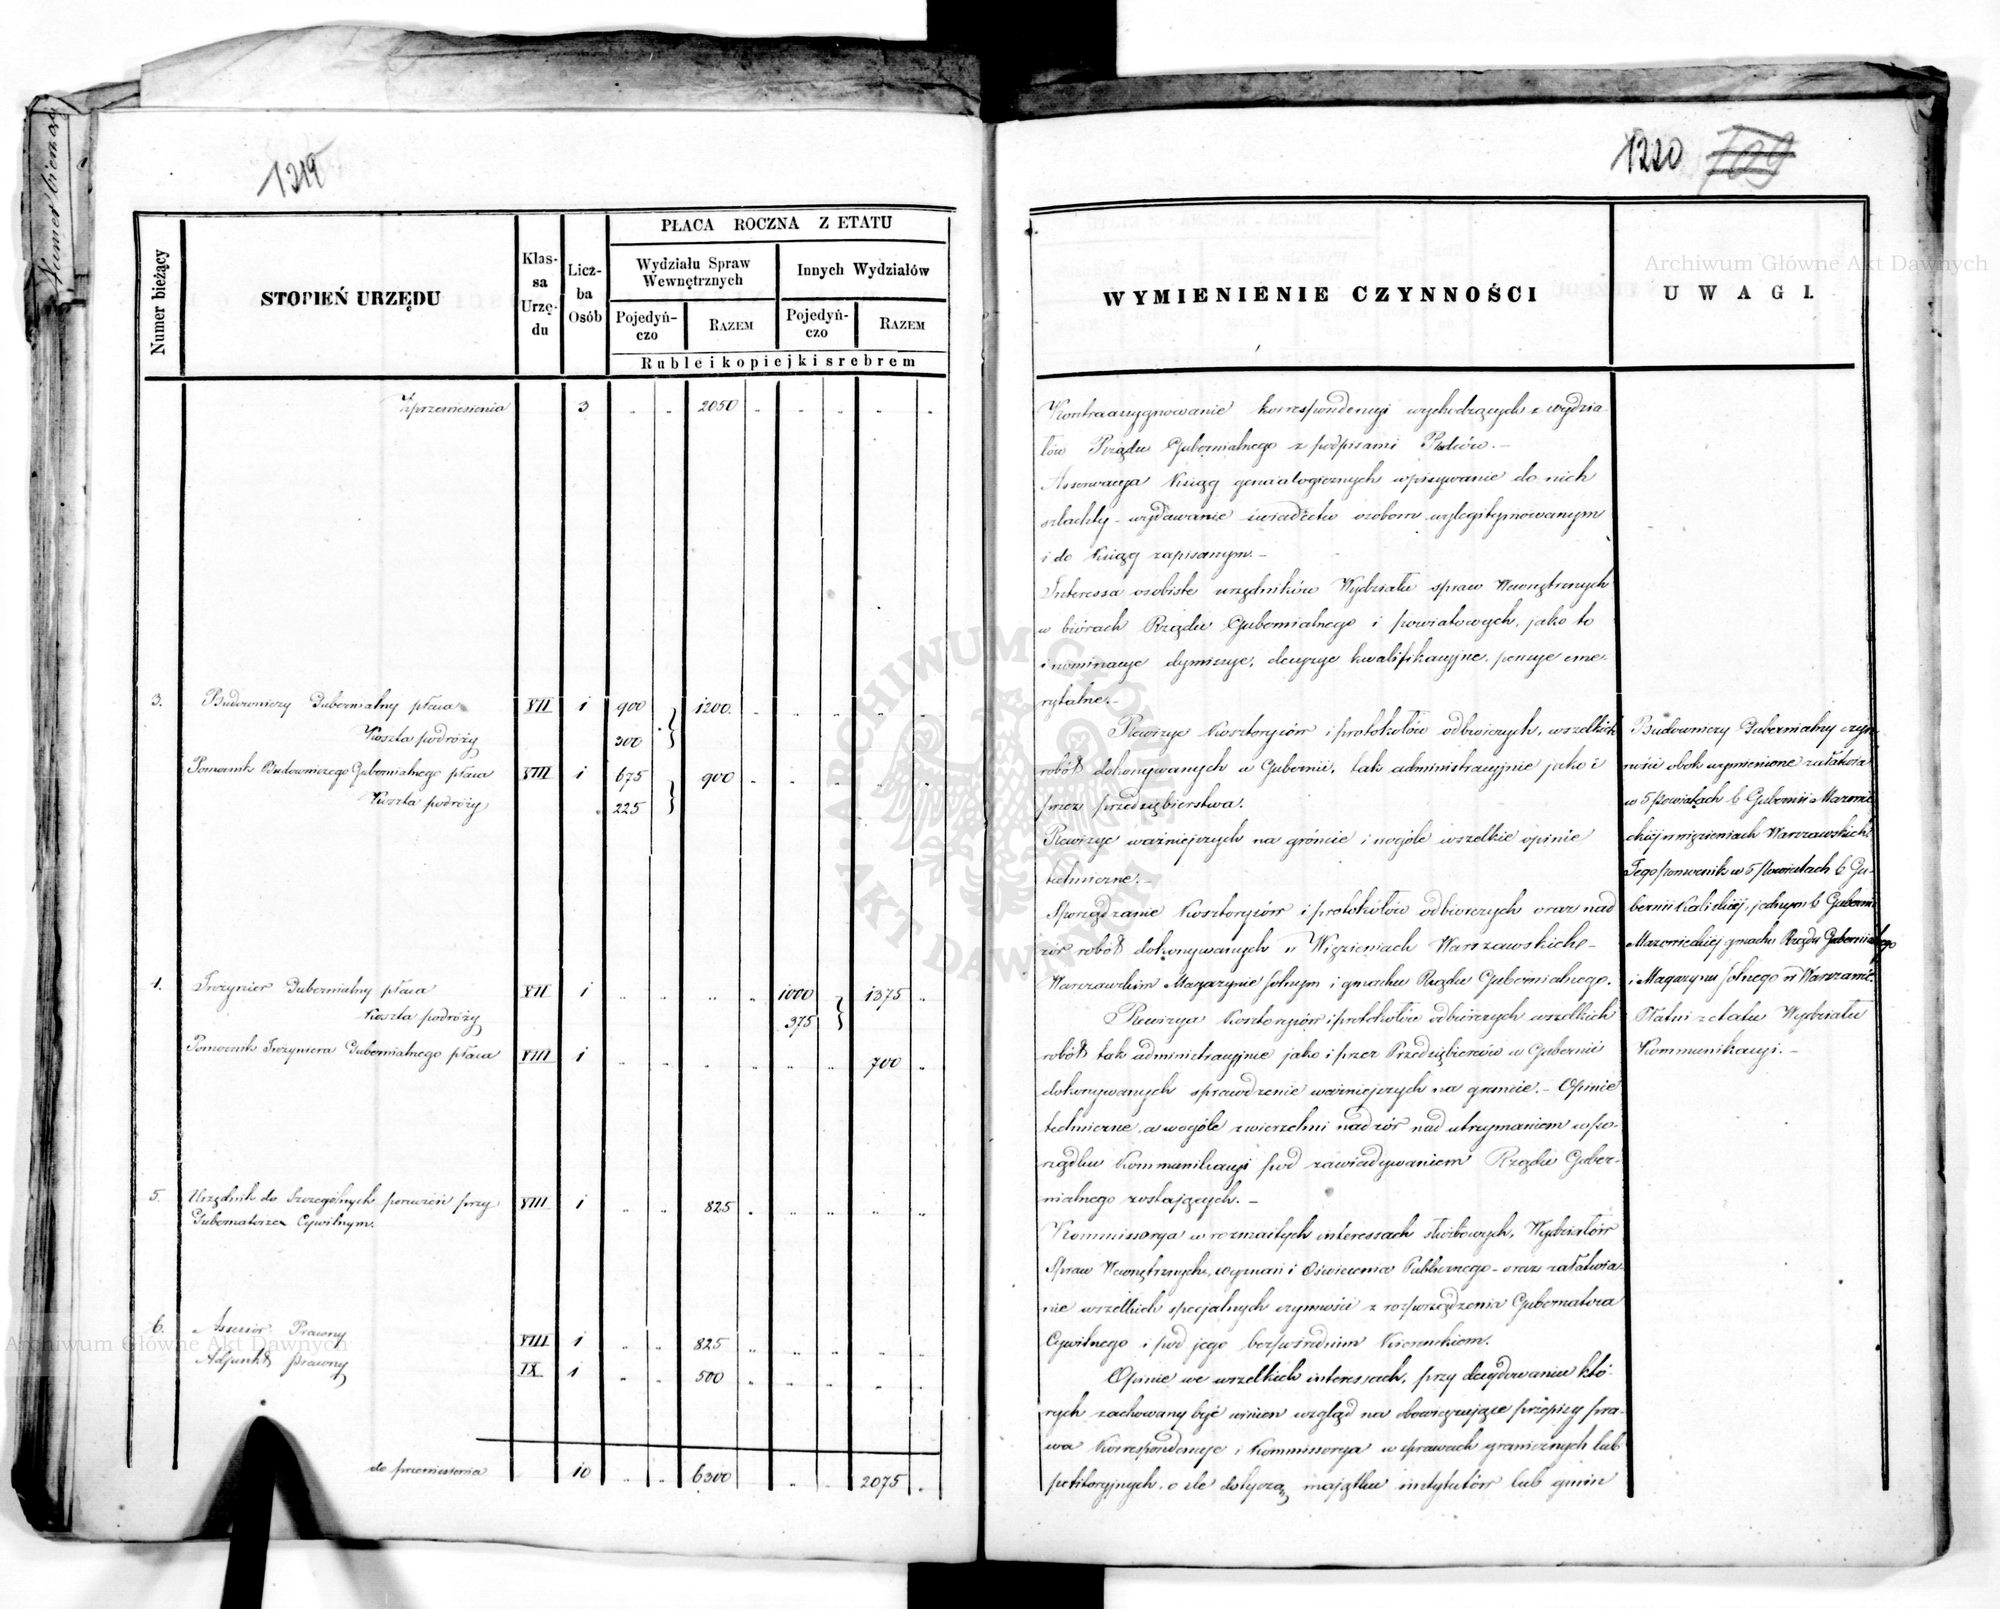 Numer bieżący
1219
Numer bieżący
STOPIEŃ URZĘDU
Klas-
sa
Urzę-
du
Licz-
ba
Osób
PŁACA ROCZNA Z ETATU
Wydziału Spraw
Wewnętrznych
Innych Wydziałów
Pojedyń-
czo
RAZEM
Pojedyń-
czo
RAZEM
Ruble i kopiejki srebrem
Z przeniesienia 3 " " 2050 " " " " "
3. Budowniczy Gubernialny płaca VII 1 900 1200 " " " " "
Koszta podróży 300
Pomocnik Budowniczego Gubernialnego płaca VIII 1 675 900 " " " " "
Koszta podróży 225
4. Inżynier Gubernialny płaca VII 1 " " " " 1000 1375 "
Koszta podróży 375
Pomocnik Inżyniera Gubernialnego płaca VIII 1 " " " " " " 700 "
5. Urzędnik do szczególnych poruczeń przy VIII 1 " " 825 " " " " "
Gubernatorze Cywilnym.
6. Assesor Prawny VIII 1 " " 825 " " " " "
Adjunkt prawny IX 1 " " 500 " " " " "
do przeniesienia 10 " " 6300 " " 2075 "
1220 709
WYMIENIENIE CZYNNOŚCI
UWAGI.
Kontrasygnowanie korrespondencyi wychodzących z wydzia-
łów Rządu Gubernialnego z podpisami Radców.-
Asserwacya Ksiąg genealogicznych wpisywanie do nich
szlachty - wydawanie świadectw osobom wylegitymowanym
i do Ksiąg zapisanym.-
Interessa osobiste urzędników Wydziału spraw Wewnętrznych
w biórach Rządu Gubernialnego i powiatowych, jako to
nominacye dymissye, decyzye kwalifikacyjne, pensye eme-
rytalne.-
Rewizye Kosztorysów i protokołów odbiorczych, wszelkich
robót dokonywanych w Gubernii, tak administracyjnie jako i
przez przedsiębierstwa.
Rewizye ważniejszych na gróncie i wogóle wszelkie opinie
techniczne.-
Sporządzanie Kosztorysów i protokółów odbiorczych oraz nad
zór robót dokonywanych w Więzieniach Warszawskich-
Warszawskim Magazynie Solnym i gmachu Rządu Gubernialnego.
Rewizya Kosztorysów i protokołów odbiorczych wszelkich
robót tak administracyjnie jako i przez Przedsiębierców w Gubernii
dokonywanych sprawdzenie ważniejszych na gruncie.- Opinie
techniczne, a wogóle zwierzchni nadzór nad utrzymaniem w po-
rządku Kommunikacyi pod zawiadywaniem Rządu Guber-
nialnego zostających.-
Kommissorya w rozmaitych interessach służbowych, Wydziałów
Spraw Wewnętrznych, wyznań i Oświecenia Publicznego - oraz załatwia-
nie wszelkich specjalnych czynności z rozporządzenia Gubernatora
Cywilnego i pod jego bezpośrednim Kierunkiem.
Opinie we wszelkich interessach, przy decydowaniu któ-
rych zachowany być winien wzgląd na obowiązujące przepisy pra-
wa Korrespondencye i Kommissorya w sprawach granicznych lub
petitoryjnych, o ile dotyczą majątku instytutów lub gmin
Budowniczy Gubernialny czyn
ności obok wymienione załatwia
w 5 Powiatach b Gubernii Mazowie
ckiej w więzieniach Warszawskich.
Tego pomocnik w 5 Powiatach b Gu-
bernii Kaliskiej, jednym b Guberni
Mazowieckiej gmachu Rządu Gubernialnego
i Magazynu Solnego w Warszawie.
Płatni z etatu Wydziału
Kommunikacyi.-
Archiwum Główne Akt Dawnych
ARCHIWUM GŁÓWNE AKT DAWNYCH
Archiwum Główne Akt Dawnych